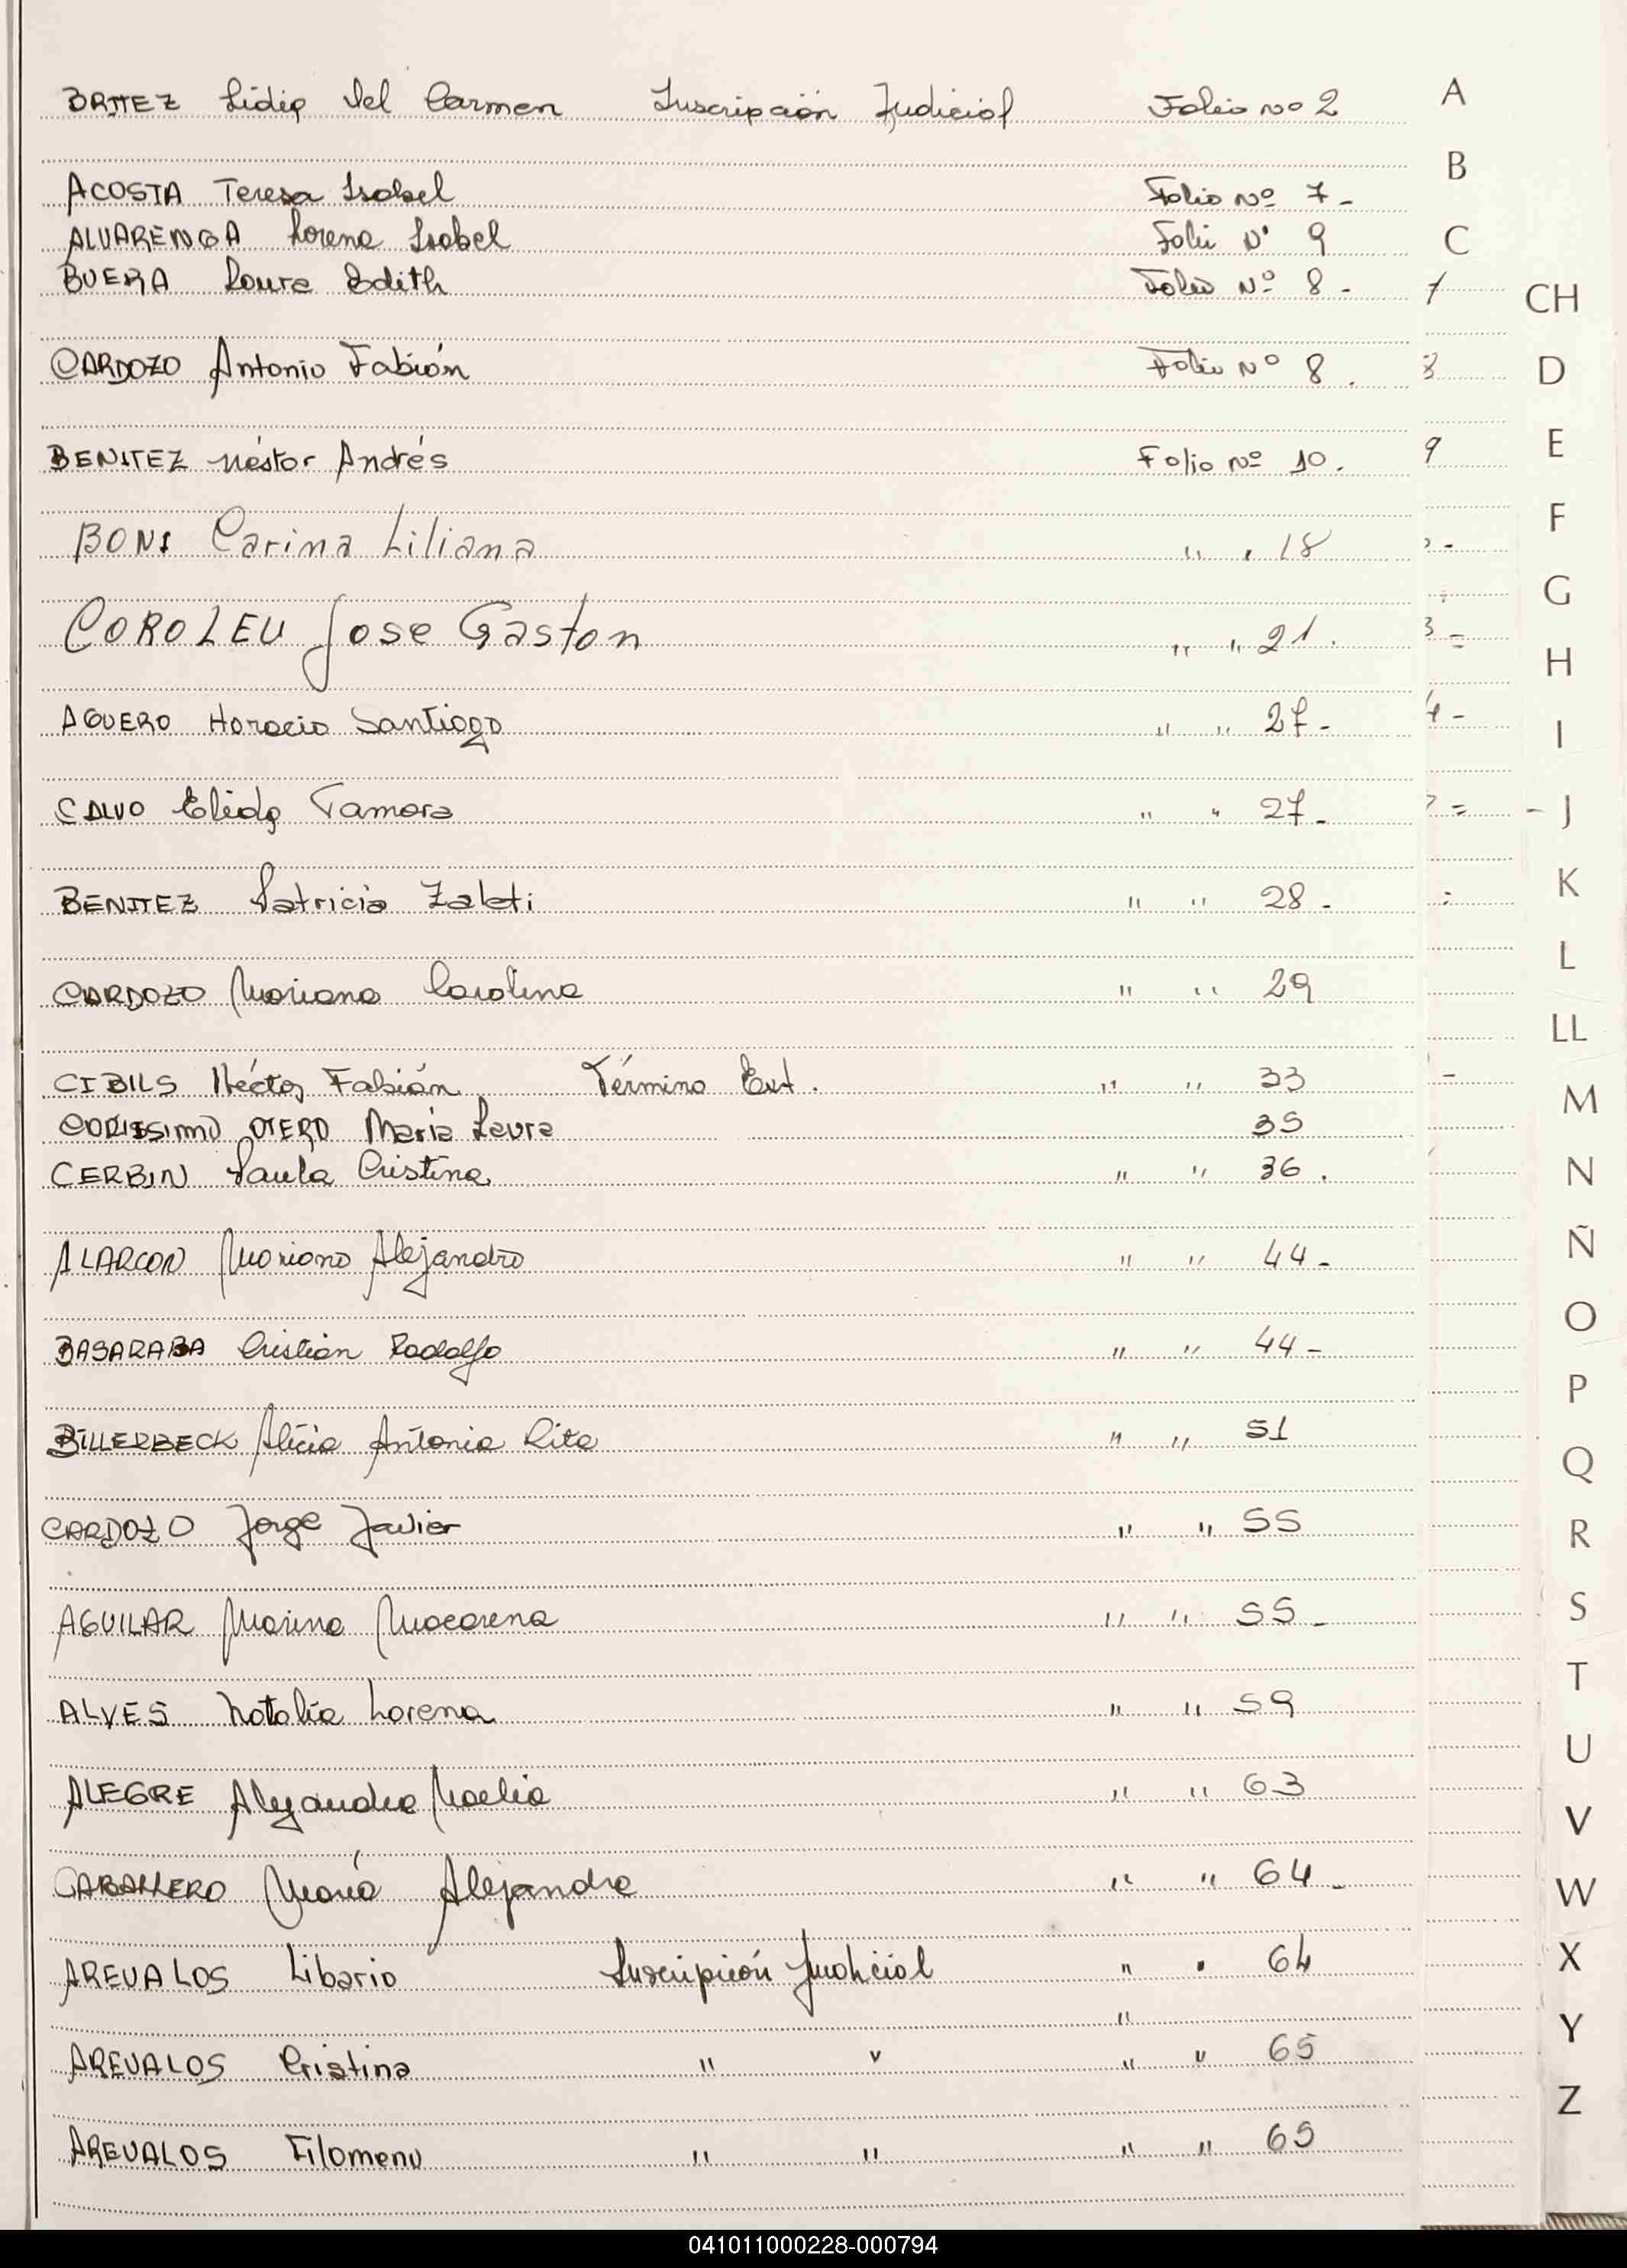 BRITEZ Lidia Del Carmen Inscripción Judicial Folio Nº 2
ACOSTA Teresa Isabel Folio Nº 7-
ALVARENGA Lorena Isabel Folio Nº 9
BUERA Laura Edith Folio Nº 8-
CARDOZO Antonio Fabián Folio Nº 8.
BENITEZ Néstor Andrés Folio Nº 10.
BONI Carina Liliana " " 18
COROLEU Jose Gaston " " 21.
AGUERO Horacio Santiago " " 27-
CALVO Elida Tamara " " 27-
BENITEZ Patricia " " 28-
CARDOZO Mariana Carolina " " 29
CIBILS Héctor Fabián Término Ext. " " 33
OTERO María Laura 35
CERBIN Paula Cristina " " 36.
ALARCON Mariano Alejandro " " 44-
BASARABA Cristian Rodolfo " " 44-
BILLERBECK Alicia Antonia Rita " " 51
CARDOZO Jorge Javier " " 55
AGUILAR Marina Macarena " " 55-
ALVES Natalia Lorena " " 59
ALEGRE Alejandra Noelia " " 63
CABALLERO María Alejandra " " 64-
AREVALOS Liborio Inscripción Judicial " " 64
"
AREVALOS Cristina " " " " 65
AREVALOS Filomeno " " " " 65
A
B
C
CH
D
E
F
G
H
I
J
K
L
LL
M
N
Ñ
O
P
Q
R
S
T
U
V
W
X
Y
Z
041011000228-000794